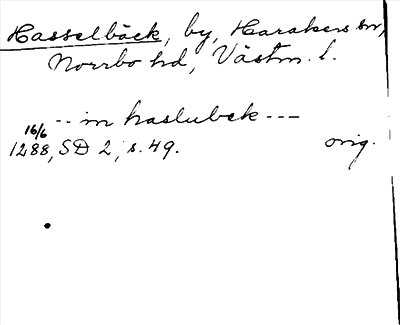 Hasselbäck, by, Harakers sn,
Norrbo hd, Västm. l.
-- in haslubek ---
16/6
1288, SD 2, s. 49. orig.